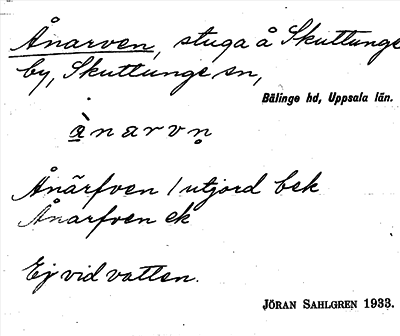 Ånarven, stuga å Skuttunge
by, Skuttunge sn,
Bälinge hd, Uppsala län.
ànarvn̥
Ånärfven / utjord bek
Ånarfven ek
Ej vid vatten.
JÖRAN SAHLGREN 1933.